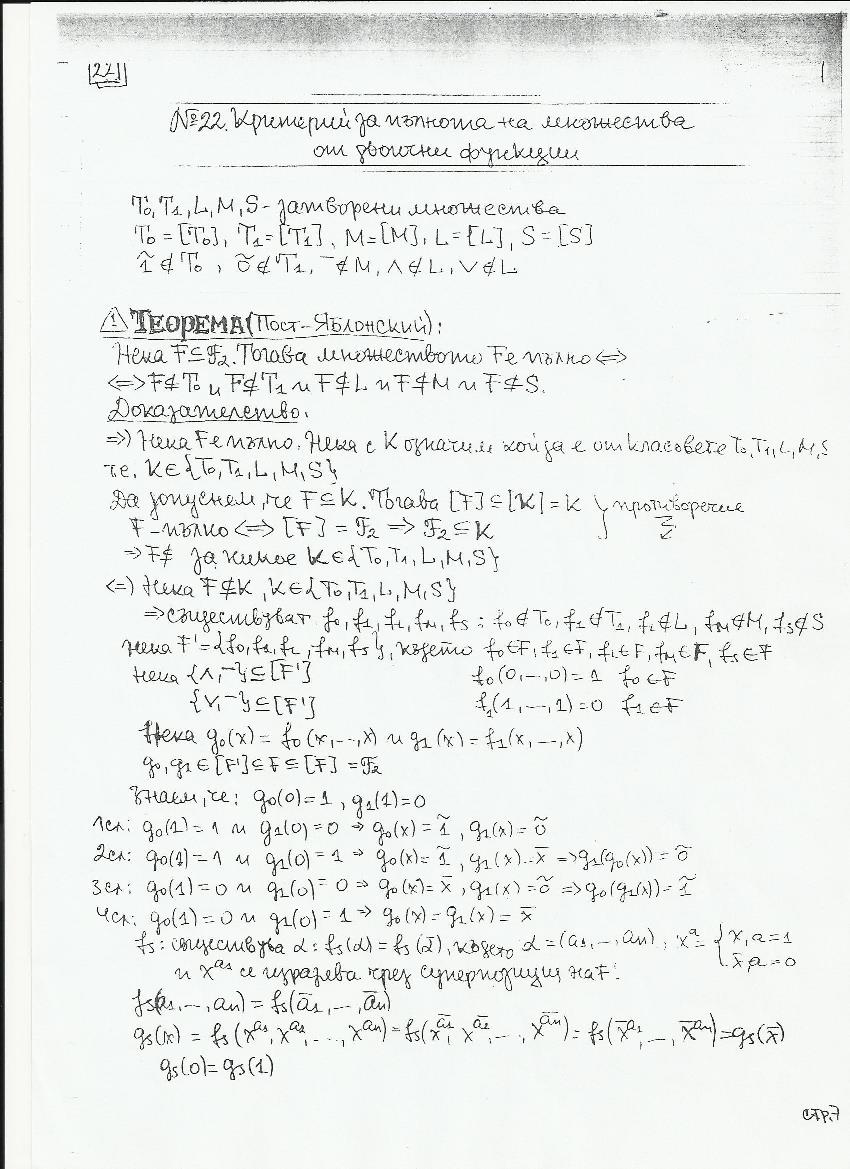 |22|
№22. Критерий за пълнота на множества
от двоични функции
T₀, T₁, L, M, S - затворени множества
T₀ = [T₀], T₁ = [T₁], M = [M], L = [L], S = [S]
1̃ ∉ T₀, 0̃ ∉ T₁, ¯ ∉ M, ∧ ∉ L, ∨ ∉ L
⚠ ТЕОРЕМА (Пост-Яблонский):
Нека F ⊆ F₂. Тогава множеството F е пълно <=>
<=> F ⊈ T₀ и F ⊈ T₁ и F ⊈ L и F ⊈ M и F ⊈ S.
Доказателство:
=>) Нека F е пълно. Нека с K означим кой да е от класовете T₀, T₁, L, M, S
т.е. K ∈ {T₀, T₁, L, M, S}
Да допуснем, че F ⊆ K. Тогава [F] ⊆ [K] = K } противоречие
F - пълно <=> [F] = F₂ => F₂ ⊆ K
=> F ⊈ за никое K ∈ {T₀, T₁, L, M, S}
<=) Нека F ⊈ K, K ∈ {T₀, T₁, L, M, S}
=> съществуват f₀, f₁, f_L, f_M, f_S : f₀ ∉ T₀, f₁ ∉ T₁, f_L ∉ L, f_M ∉ M, f_S ∉ S
Нека F' = {f₀, f₁, f_L, f_M, f_S}, където f₀ ∈ F, f₁ ∈ F, f_L ∈ F, f_M ∈ F, f_S ∈ F
Нека {∧, ¯} ⊆ [F'] f₀(0,...,0) = 1 f₀ ∈ F
{∨, ¯} ⊆ [F'] f₁(1,...,1) = 0 f₁ ∈ F
Нека g₀(x) = f₀(x,...,x) и g₁(x) = f₁(x,...,x)
g₀, g₁ ∈ [F'] ⊆ F ⊆ [F] = F₂
Знаем, че: g₀(0) = 1, g₁(1) = 0
1сл: g₀(1) = 1 и g₁(0) = 0 => g₀(x) = 1̃, g₁(x) = 0̃
2сл: g₀(1) = 1 и g₁(0) = 1 => g₀(x) = 1̃, g₁(x) = x̄ => g₁(g₀(x)) = 0̃
3сл: g₀(1) = 0 и g₁(0) = 0 => g₀(x) = x̄, g₁(x) = 0̃ => g₀(g₁(x)) = 1̃
4сл: g₀(1) = 0 и g₁(0) = 1 => g₀(x) = g₁(x) = x̄
f_S : съществува α : f_S(α) = f_S(ᾱ), където α = (a₁,...,aₙ), xᵃ = { x, a=1
x̄, a=0
и x^a₁ се изразява чрез суперпозиция на F'.
f_S(a₁,...,aₙ) = f_S(ā₁,...,āₙ)
g_S(x) = f_S(x^a₁, x^a₂, ..., x^aₙ) = f_S(x^ā₁, x^ā₂, ..., x^āₙ) = f_S(x̄^a₁, ..., x̄^aₙ) = g_S(x̄)
g_S(0) = g_S(1)
СТР.7